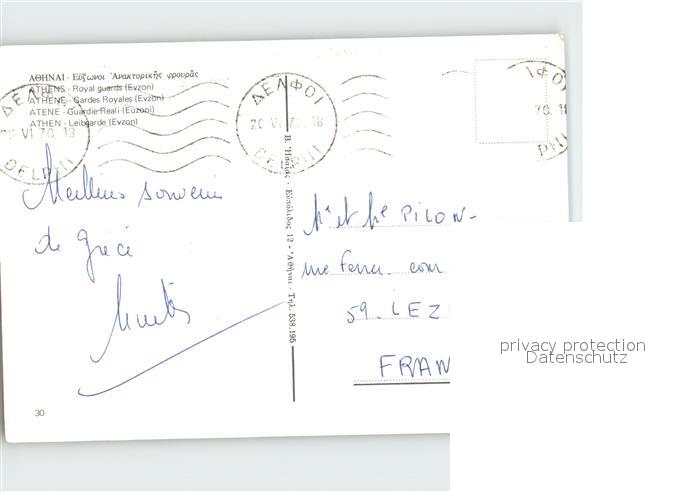 ΑΘΗΝΑΙ - Εὔζωνοι Ἀνακτορικῆς φρουρᾶς
ATHENS - Royal guards (Evzon)
ATHENE - Gardes Royales (Evzon)
ATENE - Guardie Reali (Euzoni)
ATHEN - Leibgarde (Evzon)
ΔΕΛΦΟΙ
20 VI 70. 18
DELPHI
ΔΕΛΦΟΙ
20 VI 70. 18
DELPHI
ΙΦΟΙ
70. 18
PHI
Meilleurs souvenirs
de Grèce
Εὐπόλιδος 12 - Ἀθῆναι - Τηλ. 538.195
Mr et Me PILON-
59. LEZ
FRAN
30
privacy protection
Datenschutz